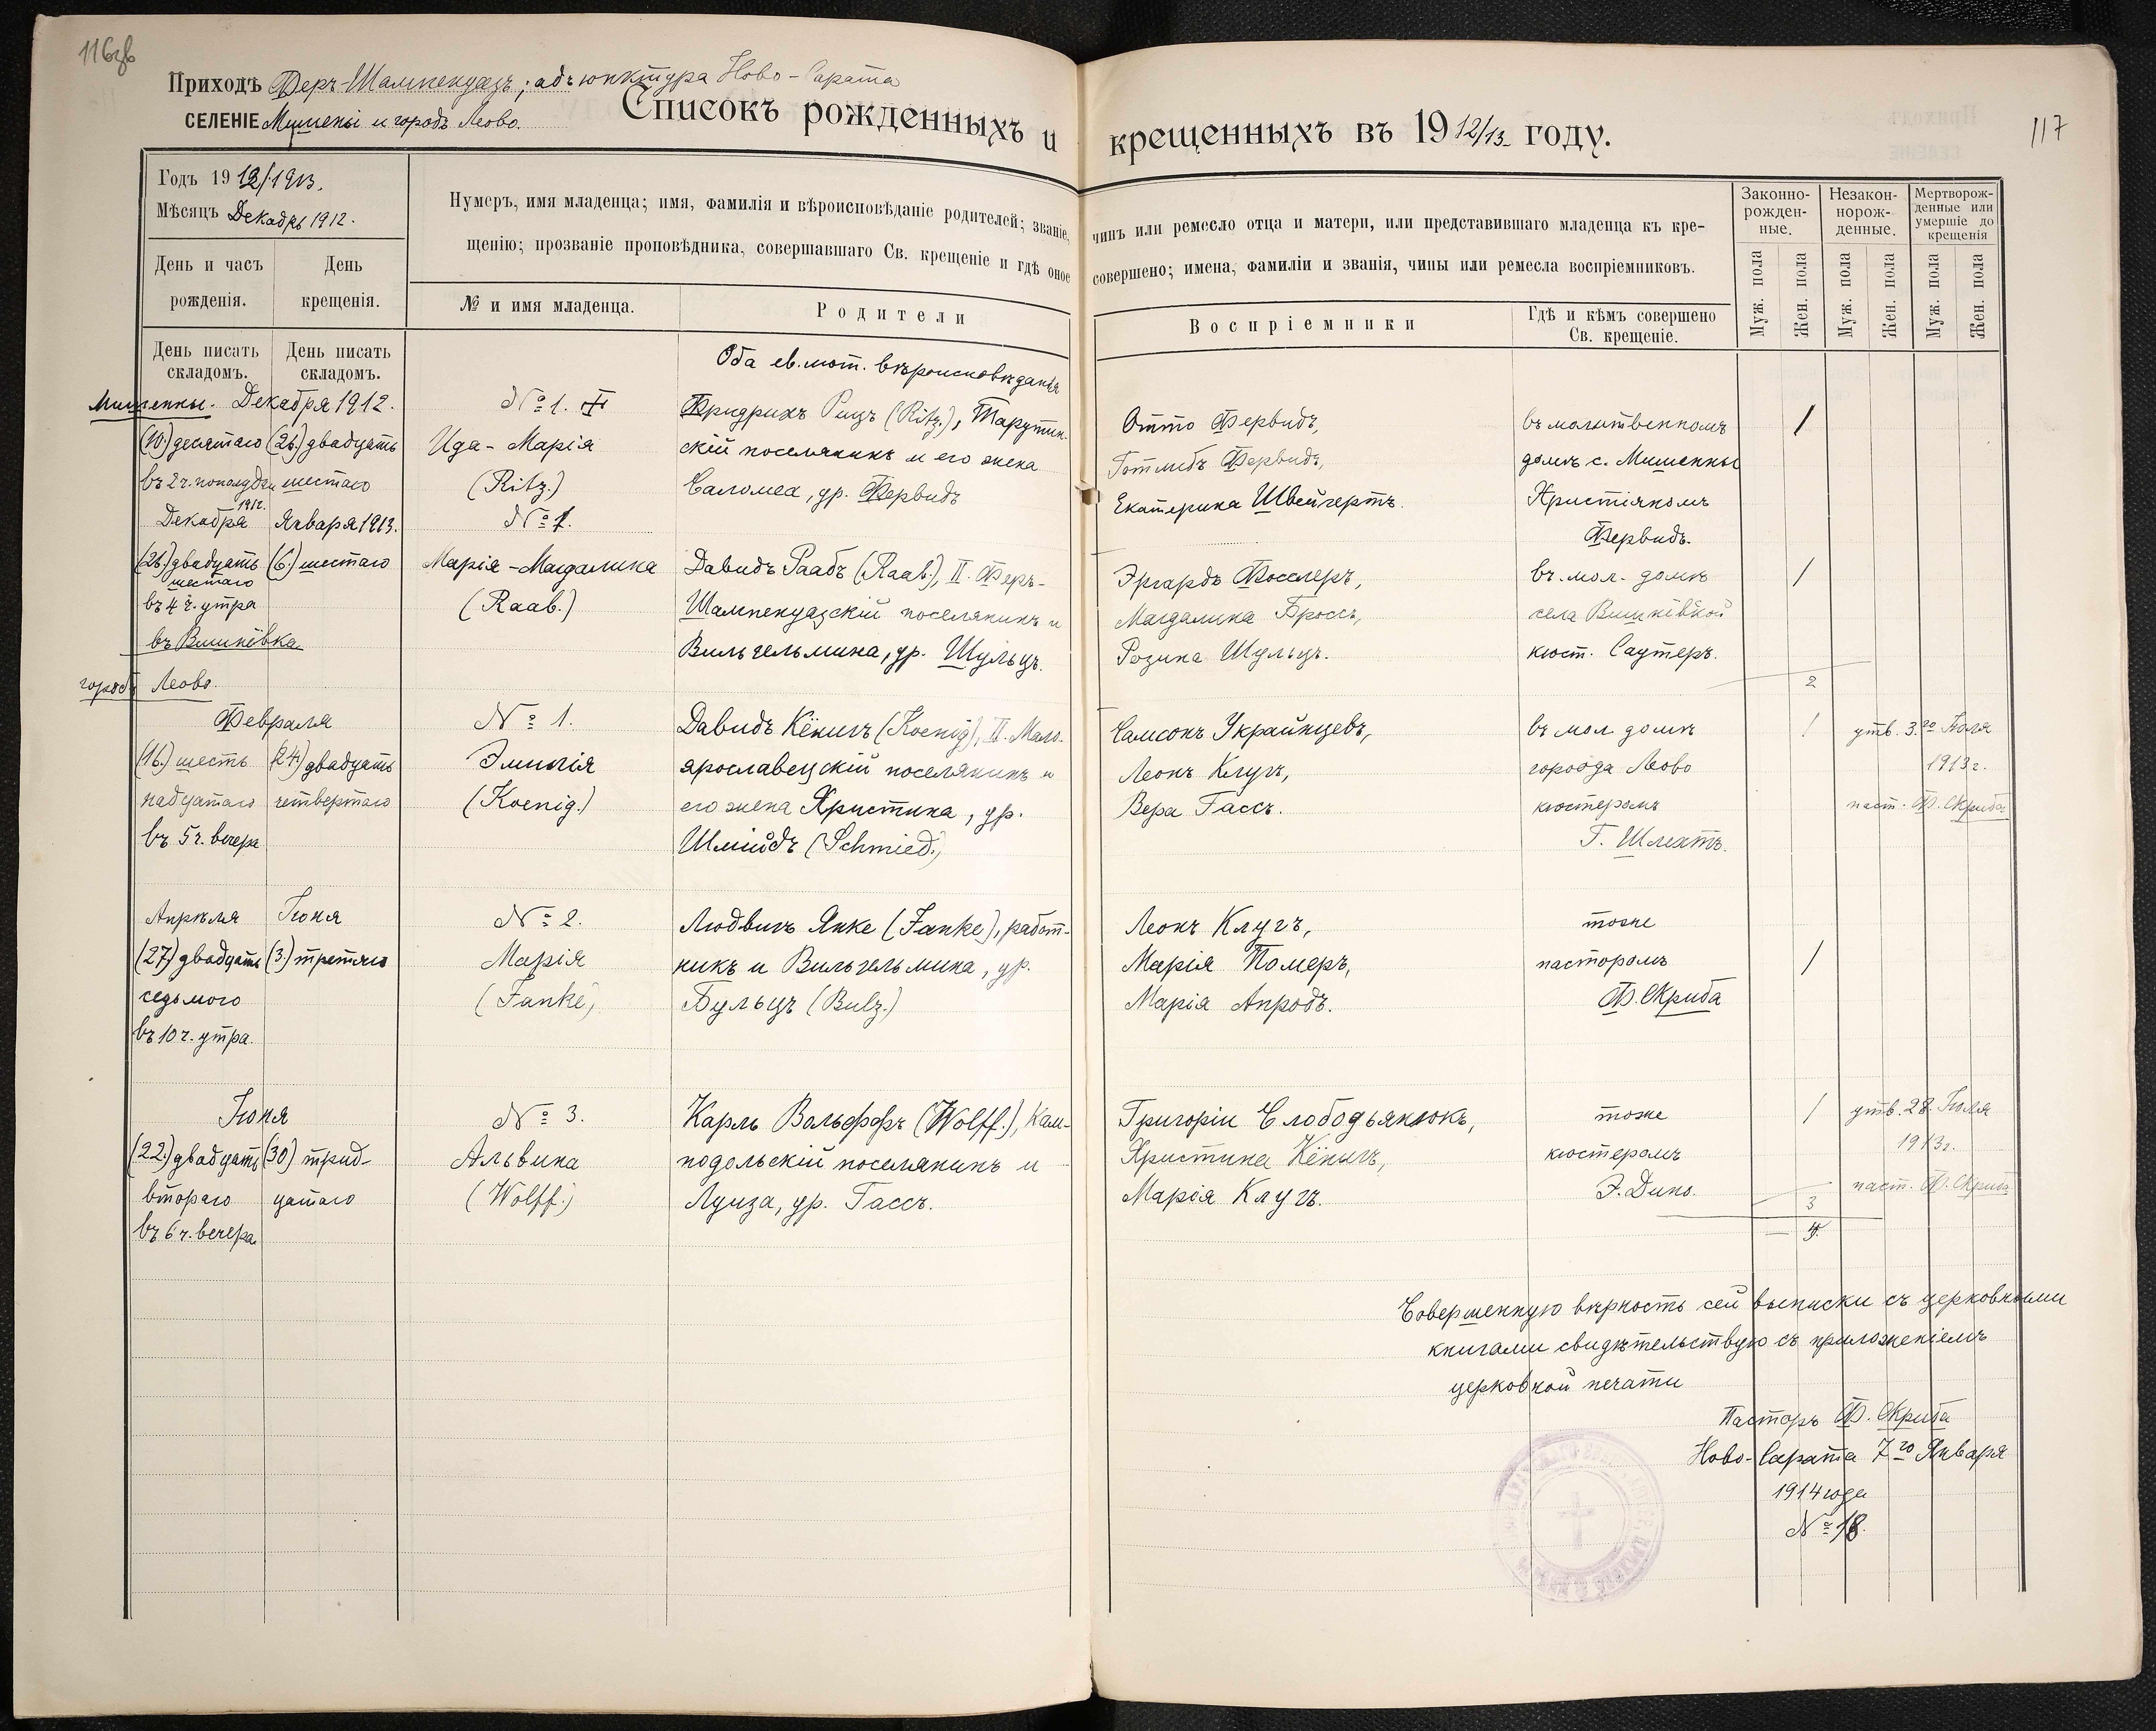 116об
117
Приходъ Феръ-Шампенуазъ; адъюнктура Ново-Сарата
СЕЛЕНІЕ Мишены и городъ Леово.
Списокъ рожденныхъ и крещенныхъ въ 1912/13 году.
Годъ 1912/1913.
Мѣсяцъ Декабрь 1912.
День и часъ рожденія.
День крещенія.
Нумеръ, имя младенца; имя, фамилія и вѣроисповѣданіе родителей; званіе, чинъ или ремесло отца и матери, или представившаго младенца къ кре-
щенію; прозваніе проповѣдника, совершавшаго Св. крещеніе и гдѣ оное совершено; имена, фамиліи и званія, чины или ремесла воспріемниковъ.
№ и имя младенца.
Родители
Воспріемники
Гдѣ и кѣмъ совершено
Св. крещеніе.
Законно-
рожден-
ные.
Незакон-
норож-
денные.
Мертворож-
денные или
умершіе до
крещенія
Муж. пола
Жен. пола
Муж. пола
Жен. пола
Муж. пола
Жен. пола
День писать
складомъ.
День писать
складомъ.
Мишенны. Декабря 1912.
(10.) десятаго
въ 2 ч. пополудни
(26.) двадцать
шестаго
№ 1.
Ида-Марія
(Ritz.)
Оба ев. лют. вѣроисповѣданія
Фридрихъ Рицъ (Ritz.), Тарутин-
скій поселянинъ и его жена
Саломеа, ур. Фервидъ
Отто Фервидъ,
Готлибъ Фервидъ,
Екатерина Швейгертъ.
въ молитвенномъ
домѣ с. Мишенны
Христіяномъ
Фервидъ.
1
Декабря 1912.
(26.) двадцать
шестаго
въ 4 ч. утра
въ Вишнёвка
Января 1913.
(6.) шестаго
№ 1.
Марія-Магдалина
(Raab.)
Давидъ Раабъ (Raab.), II. Феръ-
Шампенуазскій поселянинъ и
Вильгельмина, ур. Шульцъ.
Эргардъ Фосслеръ,
Магдалина Броссъ,
Розина Шульцъ.
въ. мол. домѣ
села Вишнёвкой
кюст. Саутеръ.
1
2
городъ Леово.
Февраля
(16.) шесть
надцатаго
въ 5 ч. вечера
(24.) двадцать
четвертаго
№ 1.
Эмилія
(Koenig.)
Давидъ Кёнигъ (Koenig), II. Мало-
ярославецскій поселянинъ и
его жена Христина, ур.
Шмидъ (Schmied.)
Самсонъ Украйнцевъ,
Леонъ Клугъ,
Вера Гассъ.
въ мол домѣ
городa Леово
кюстеромъ
Г. Шлеатъ.
1
утв. 3.го
1913 г.
паст. Ф. Скриба
Апрѣля
(27) двадцать
седьмого
въ 10 ч. утра.
Іюня
(3.) третяго
№ 2.
Марія
(Janke)
Людвигъ Янке (Janke), работ-
никъ и Вильгельмина, ур.
Бульцъ (Bulz.)
Леонъ Клугъ,
Марія Померъ,
Марія Апродъ.
тоже
пасторомъ
Ф. Скриба
1
Іюня
(22.) двадцать
второго
въ 6 ч. вечера.
(30) трид-
цатаго
№ 3.
Альвина
(Wolff.)
Карлъ Вольффъ (Wolff.), Кам-
подольскій поселянинъ и
Луиза, ур. Гассъ.
Григоріи Слободьянюкъ,
Христина Кёнигъ,
Марія Клугъ.
тоже
кюстеромъ
Э. Дино.
1
утв. 28. Іюля
1913 г.
паст. Ф. Скриба
3
Совершенную вѣрность сей выписки съ церковными
книгами свидѣтельствую съ приложеніемъ
церковной печати
Пасторъ Ф. Скриба
Ново-Сарата 7го Января
1914 года
№ 18.